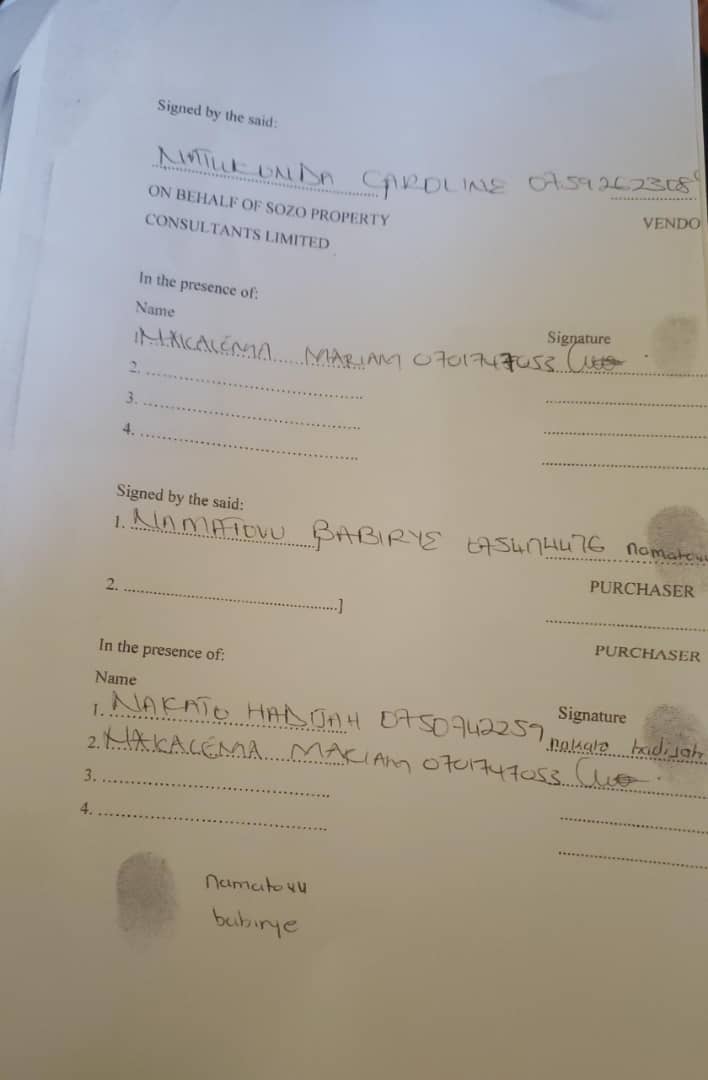 Signed by the said:
CAROLINE 0759262308
ON BEHALF OF SOZO PROPERTY
VENDO
CONSULTANTS LIMITED
In the presence of:
Name
Signature
MARIAM 0701747053
2. ........................................
3. ........................................
4. ........................................
Signed by the said:
1. NAMATOVU BABIRYE namatovu
PURCHASER
2. ........................................]
PURCHASER
In the presence of:
Name
Signature
1. NAKATO HADIJAH 0750942259 nakato hadijah
2. NAKALEMA MARIAM 0701747053
3. ........................................
4. ........................................
namatovu
babirye